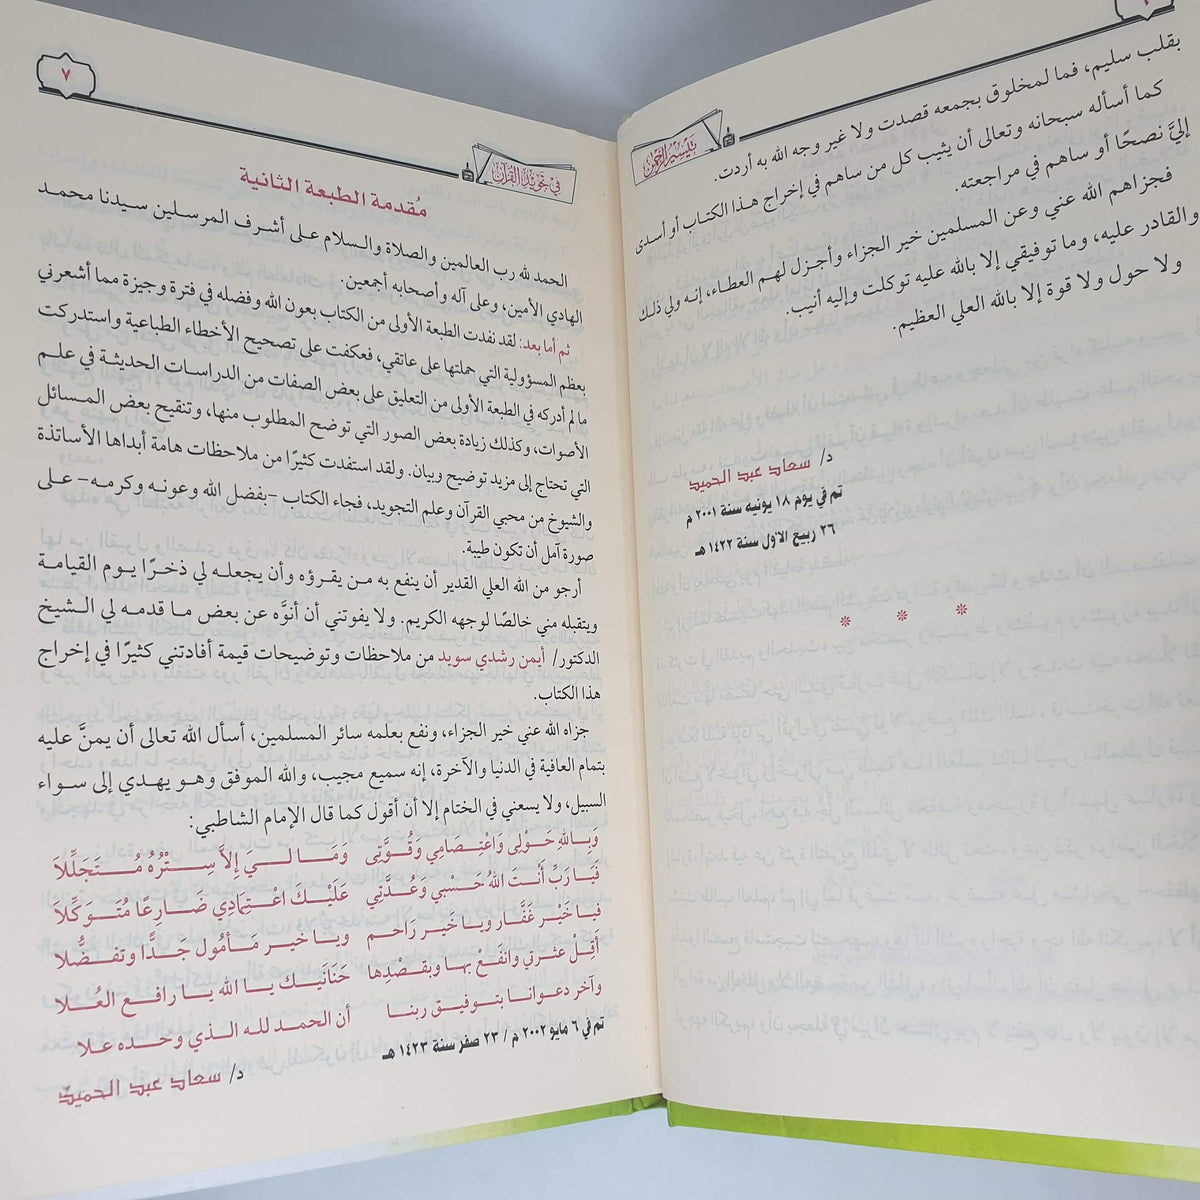 ٦
تيسير الرحمن
بقلب سليم، فما لمخلوق بجمعه قصدت ولا غير وجه الله به أردت.
كما أسأله سبحانه وتعالى أن يثيب كل من ساهم في إخراج هذا الكتاب أو أسدى
إليَّ نصحًا أو ساهم في مراجعته.
فجزاهم الله عني وعن المسلمين خير الجزاء وأجزل لهم العطاء، إنه ولي ذلك
والقادر عليه، وما توفيقي إلا بالله عليه توكلت وإليه أنيب.
ولا حول ولا قوة إلا بالله العلي العظيم.
د/ سعاد عبد الحميد
تم في يوم ١٨ يونيه سنة ٢٠٠١ م
٢٦ ربيع الأول سنة ١٤٢٢ هـ
* * *
في تجويد القرآن
٧
مُقدمة الطبعة الثانية
الحمد لله رب العالمين والصلاة والسلام على أشرف المرسلين سيدنا محمد
الهادي الأمين، وعلى آله وأصحابه أجمعين.
ثم أما بعد: لقد نفدت الطبعة الأولى من الكتاب بعون الله وفضله في فترة وجيزة مما أشعرني
بعظم المسؤولية التي حملتها على عاتقي، فعكفت على تصحيح الأخطاء الطباعية واستدركت
ما لم أدركه في الطبعة الأولى من التعليق على بعض الصفات من الدراسات الحديثة في علم
الأصوات، وكذلك زيادة بعض الصور التي توضح المطلوب منها، وتنقيح بعض المسائل
التي تحتاج إلى مزيد توضيح وبيان. ولقد استفدت كثيرًا من ملاحظات هامة أبداها الأساتذة
والشيوخ من محبي القرآن وعلم التجويد، فجاء الكتاب -بفضل الله وعونه وكرمه- على
صورة آمل أن تكون طيبة.
أرجو من الله العلي القدير أن ينفع به من يقرؤه وأن يجعله لي ذخرًا يوم القيامة
ويتقبله مني خالصًا لوجهه الكريم. ولا يفوتني أن أنوَّه عن بعض ما قدمه لي الشيخ
الدكتور/ أيمن رشدي سويد من ملاحظات وتوضيحات قيمة أفادتني كثيرًا في إخراج
هذا الكتاب.
جزاه الله عني خير الجزاء، ونفع بعلمه سائر المسلمين، أسأل الله تعالى أن يمنَّ عليه
بتمام العافية في الدنيا والآخرة، إنه سميع مجيب، والله الموفق وهو يهدي إلى سواء
السبيل، ولا يسعني في الختام إلا أن أقول كما قال الإمام الشاطبي:
وَبِاللهِ حَوْلِى وَاعْتِصَامِي وَقُوَّتِى وَمَا لِيَ إِلاَّ سِتْرُهُ مُتَجَلِّلَا
فَيَا رَبِّ أَنْتَ اللهُ حَسْبِي وَعُدَّتِي عَلَيْكَ اعْتِمَادِي ضَارِعًا مُتَوَكِّلَا
فيا خَيْر غَفَّار ويا خَير رَاحم ويا خير مَأمُول جَدًّا وتفضُّلا
أَقِلْ عثرتي وانفَعْ بها وبقَصْدِها حَنَانَيك يا الله يا رافع العُلا
وآخر دعوانا بتوفيق ربنا أن الحمد لله الذي وحده علا
تم في ٦ مايو ٢٠٠٢ م / ٢٣ صفر سنة ١٤٢٣ هـ
د/ سعاد عبد الحميد